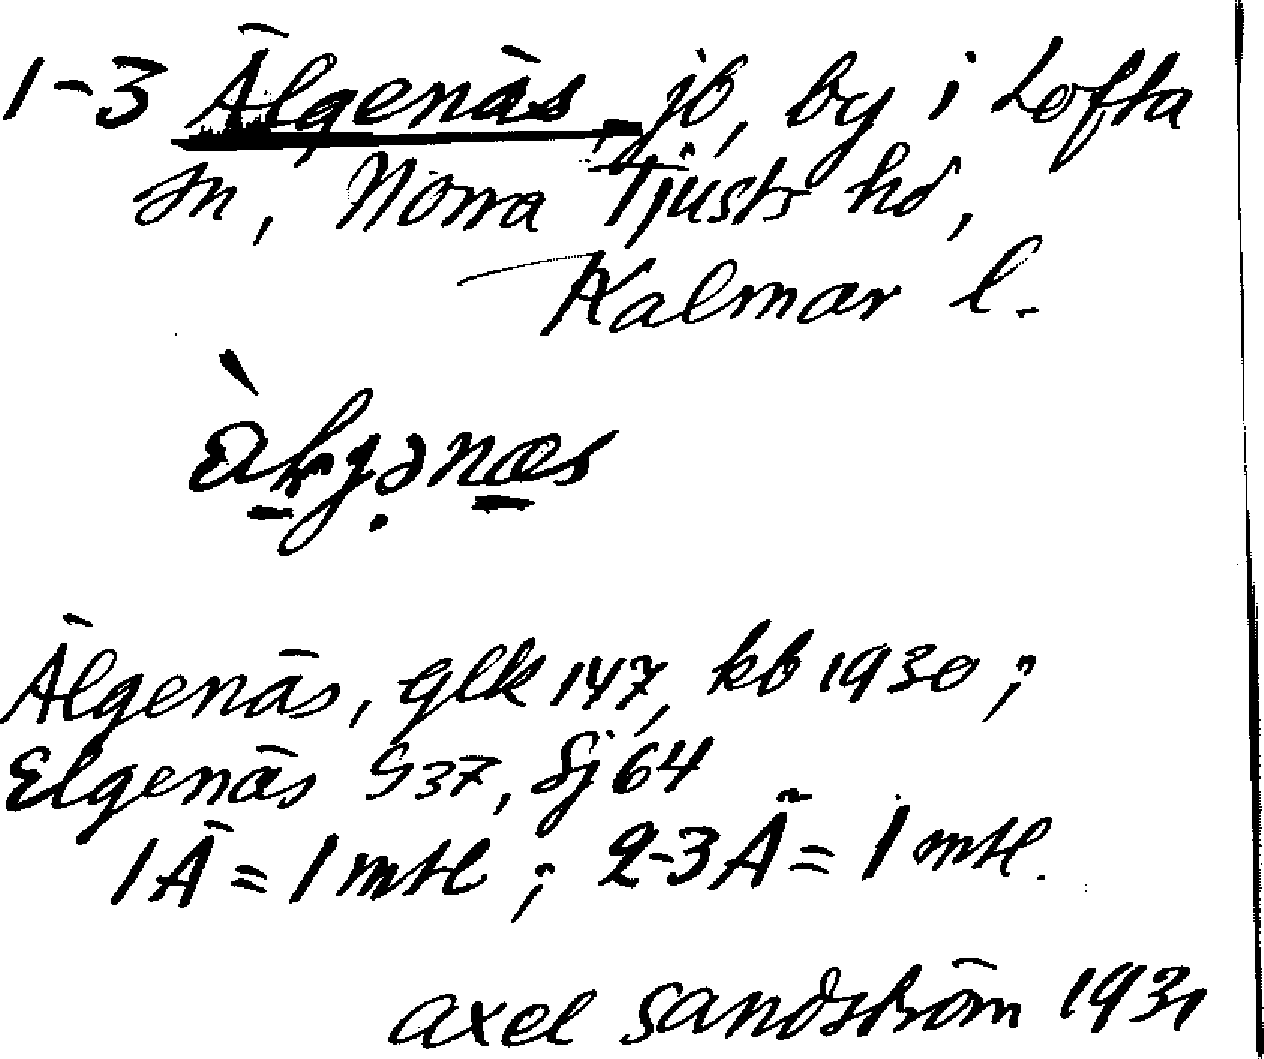 1-3 Älgenäs, jb, by i Lofta
sn, Norra Tjusts hd,
Kalmar l.
Älgenäs, glk 147, kb 1930;
Elgenäs S37, Sj 64
1 Ä = 1 mtl; 2-3 Ä = 1 mtl.
axel Sandström 1931